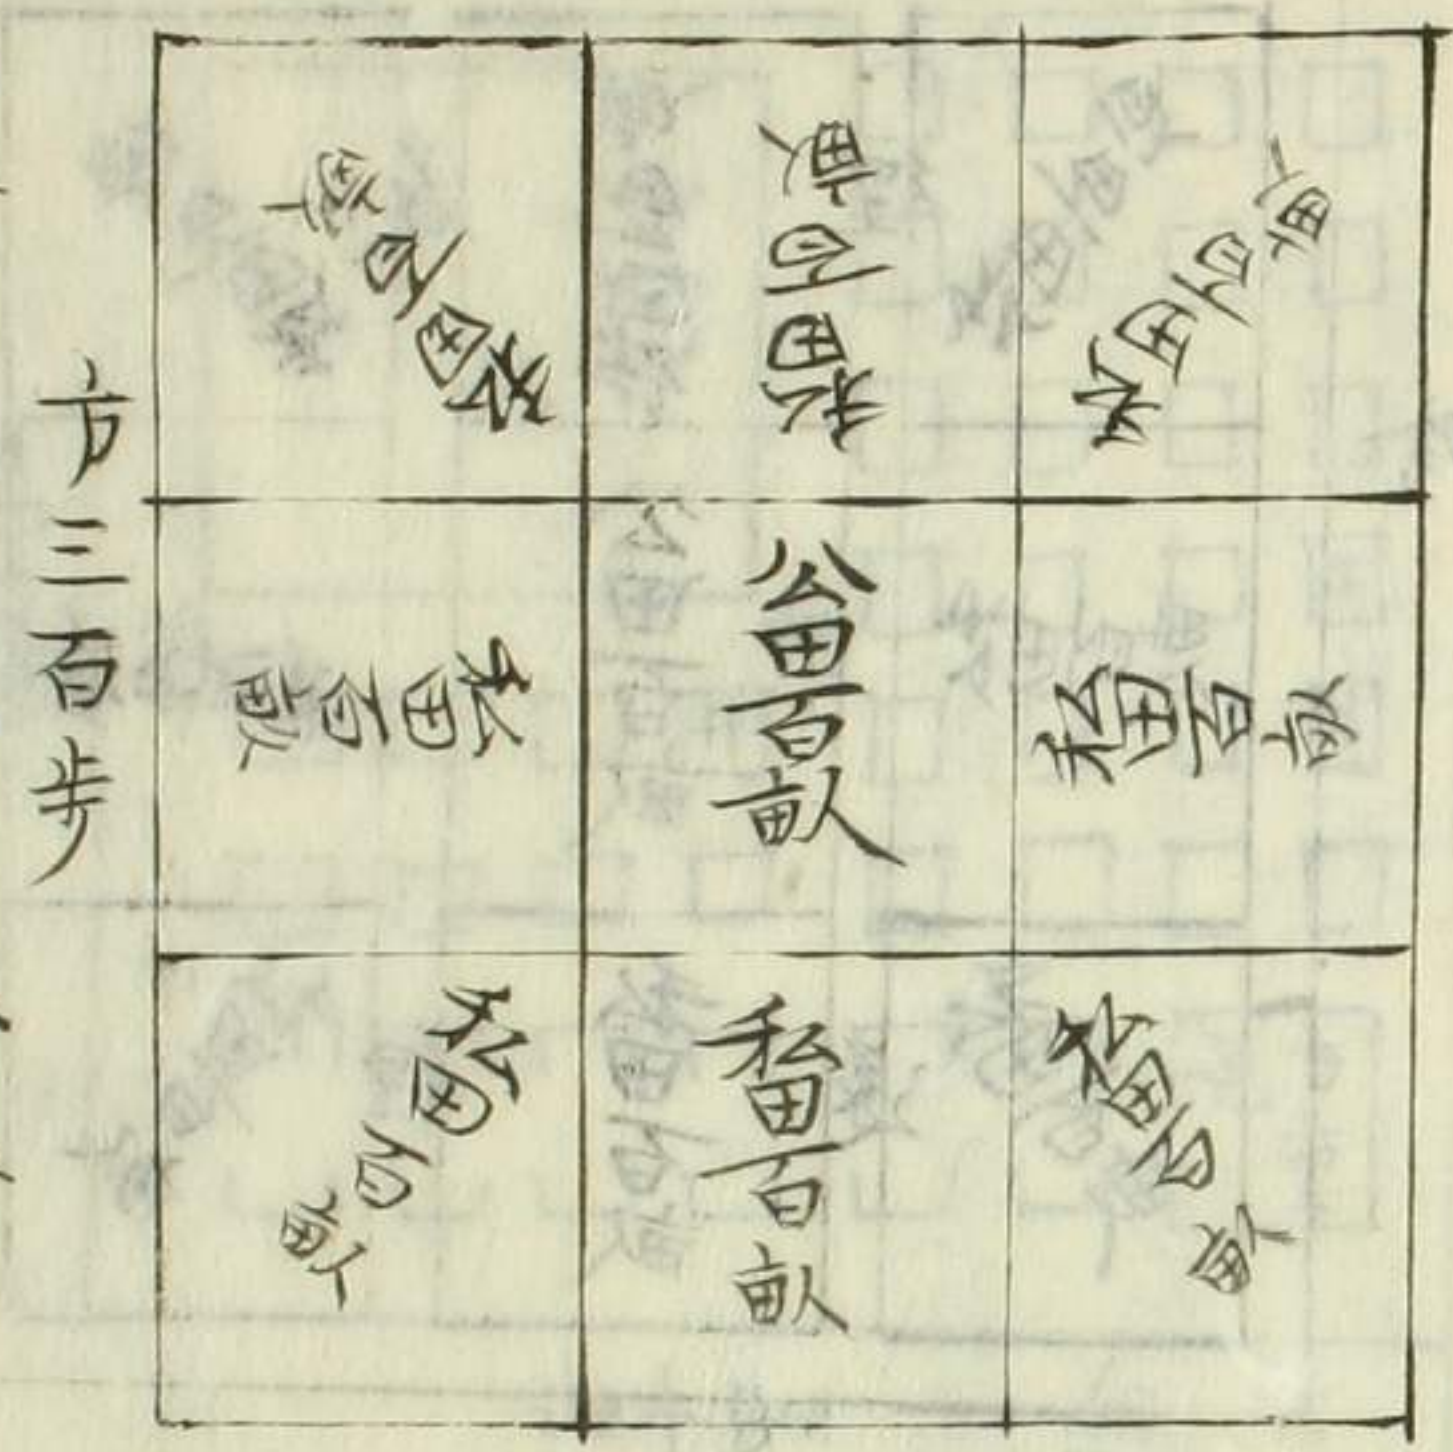 私田百畝
私田百畝
私田百畝
私田百畝
公田百畝
私田百畝
私田百畝
私田百畝
私田百畝
方三百步